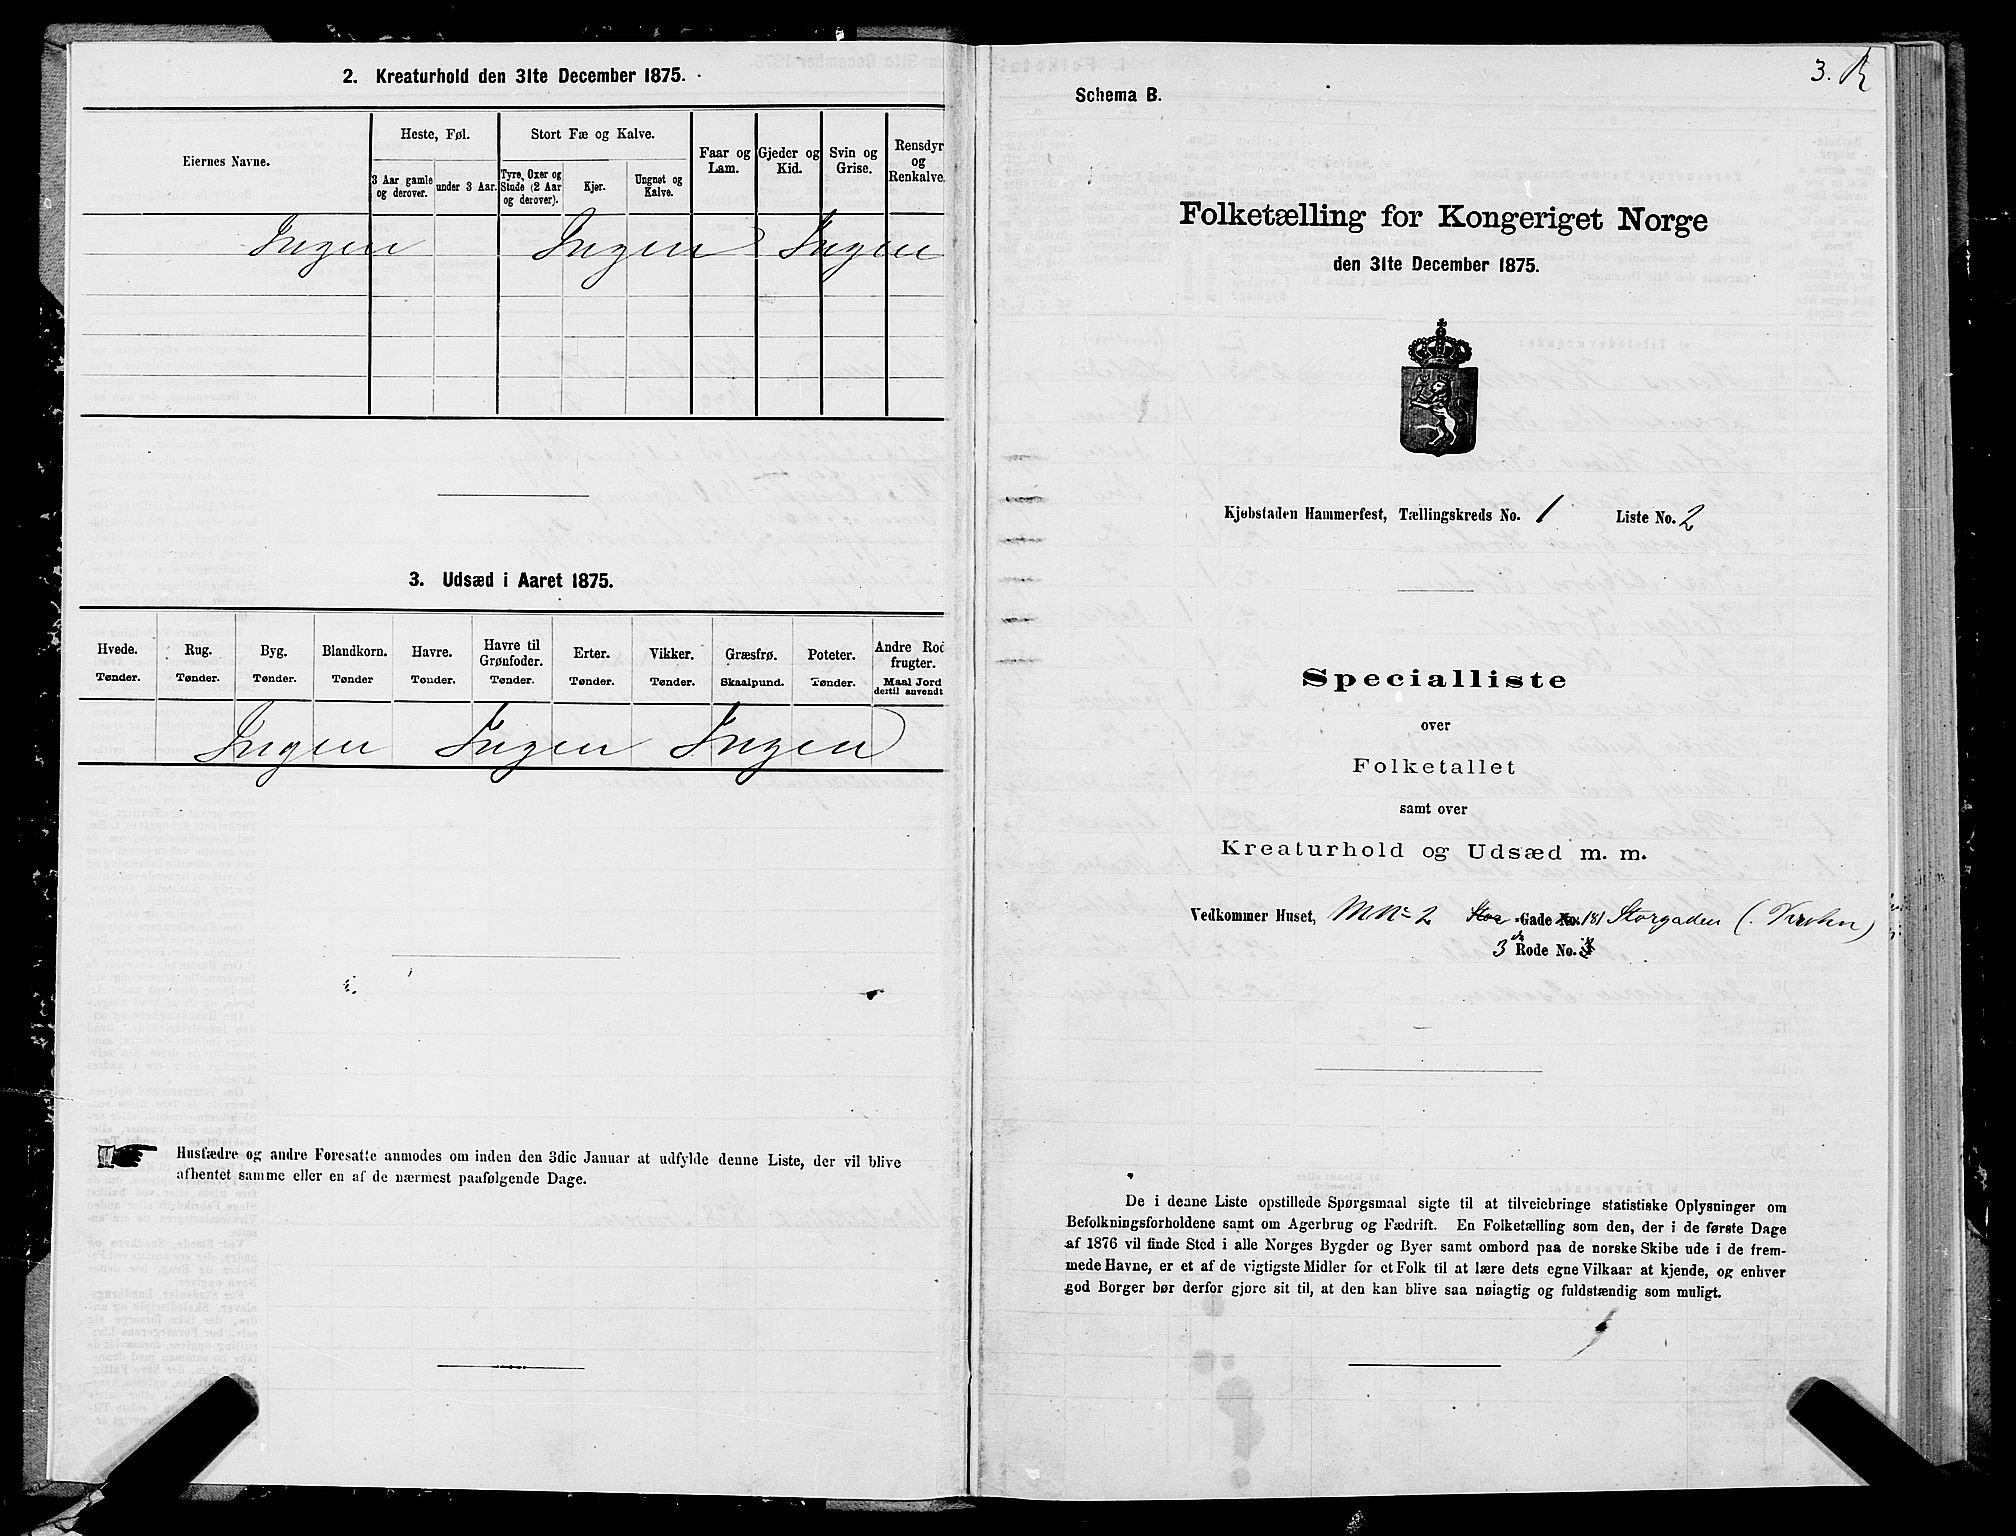 2. Kreaturhold den 31te December 1875.
Eiernes Navne.
Heste, Føl.
Stort Fæ og Kalve.
Faar og Lam.
Gjeder og Kid.
Svin og Grise.
Rensdyr og Renkalve.
3 Aar gamle og derover.
under 3 Aar.
Tyre, Oxer og Stude (2 Aar og derover).
Kjør.
Ungnøt og Kalve.
Ingen Ingen Ingen
3. Udsæd i Aaret 1875.
Hvede. Rug. Byg. Blandkorn. Havre. Havre til Grønfoder. Erter. Vikker. Græsfrø. Poteter. Andre Rod frugter.
Tønder. Tønder. Tønder. Tønder Tønder. Tønder. Tønder. Tønder. Skaalpund. Tønder. Maal Jord dertil anvendt
Ingen Ingen Ingen
Husfædre og andre Foresatte anmodes om inden den 3die Januar at udfylde denne Liste, der vil blive
afhentet samme eller en af de nærmest paafølgende Dage.
3.
Schema B.
Folketælling for Kongeriget Norge
den 31te December 1875.
Kjøbstaden Hammerfest, Tællingskreds No. 1 Liste No. 2
Specialliste
over
Folketallet
samt over
Kreaturhold og Udsæd m. m.
Vedkommer Huset, MNr 2 Stor-Gade No. 181 Storgaden
3 Rode No.
De i denne Liste opstillede Spørgsmaal sigte til at tilveiebringe statistiske Oplysninger om
Befolkningsforholdene samt om Agerbrug og Fædrift. En Folketælling som den, der i de første Dage
af 1876 vil finde Sted i alle Norges Bygder og Byer samt ombord paa de norske Skibe ude i de frem-
mede Havne, er et af de vigtigste Midler for et Folk til at lære dets egne Vilkaar at kjende, og enhver
god Borger bør derfor gjøre sit til, at den kan blive saa nøiagtig og fuldstændig som muligt.